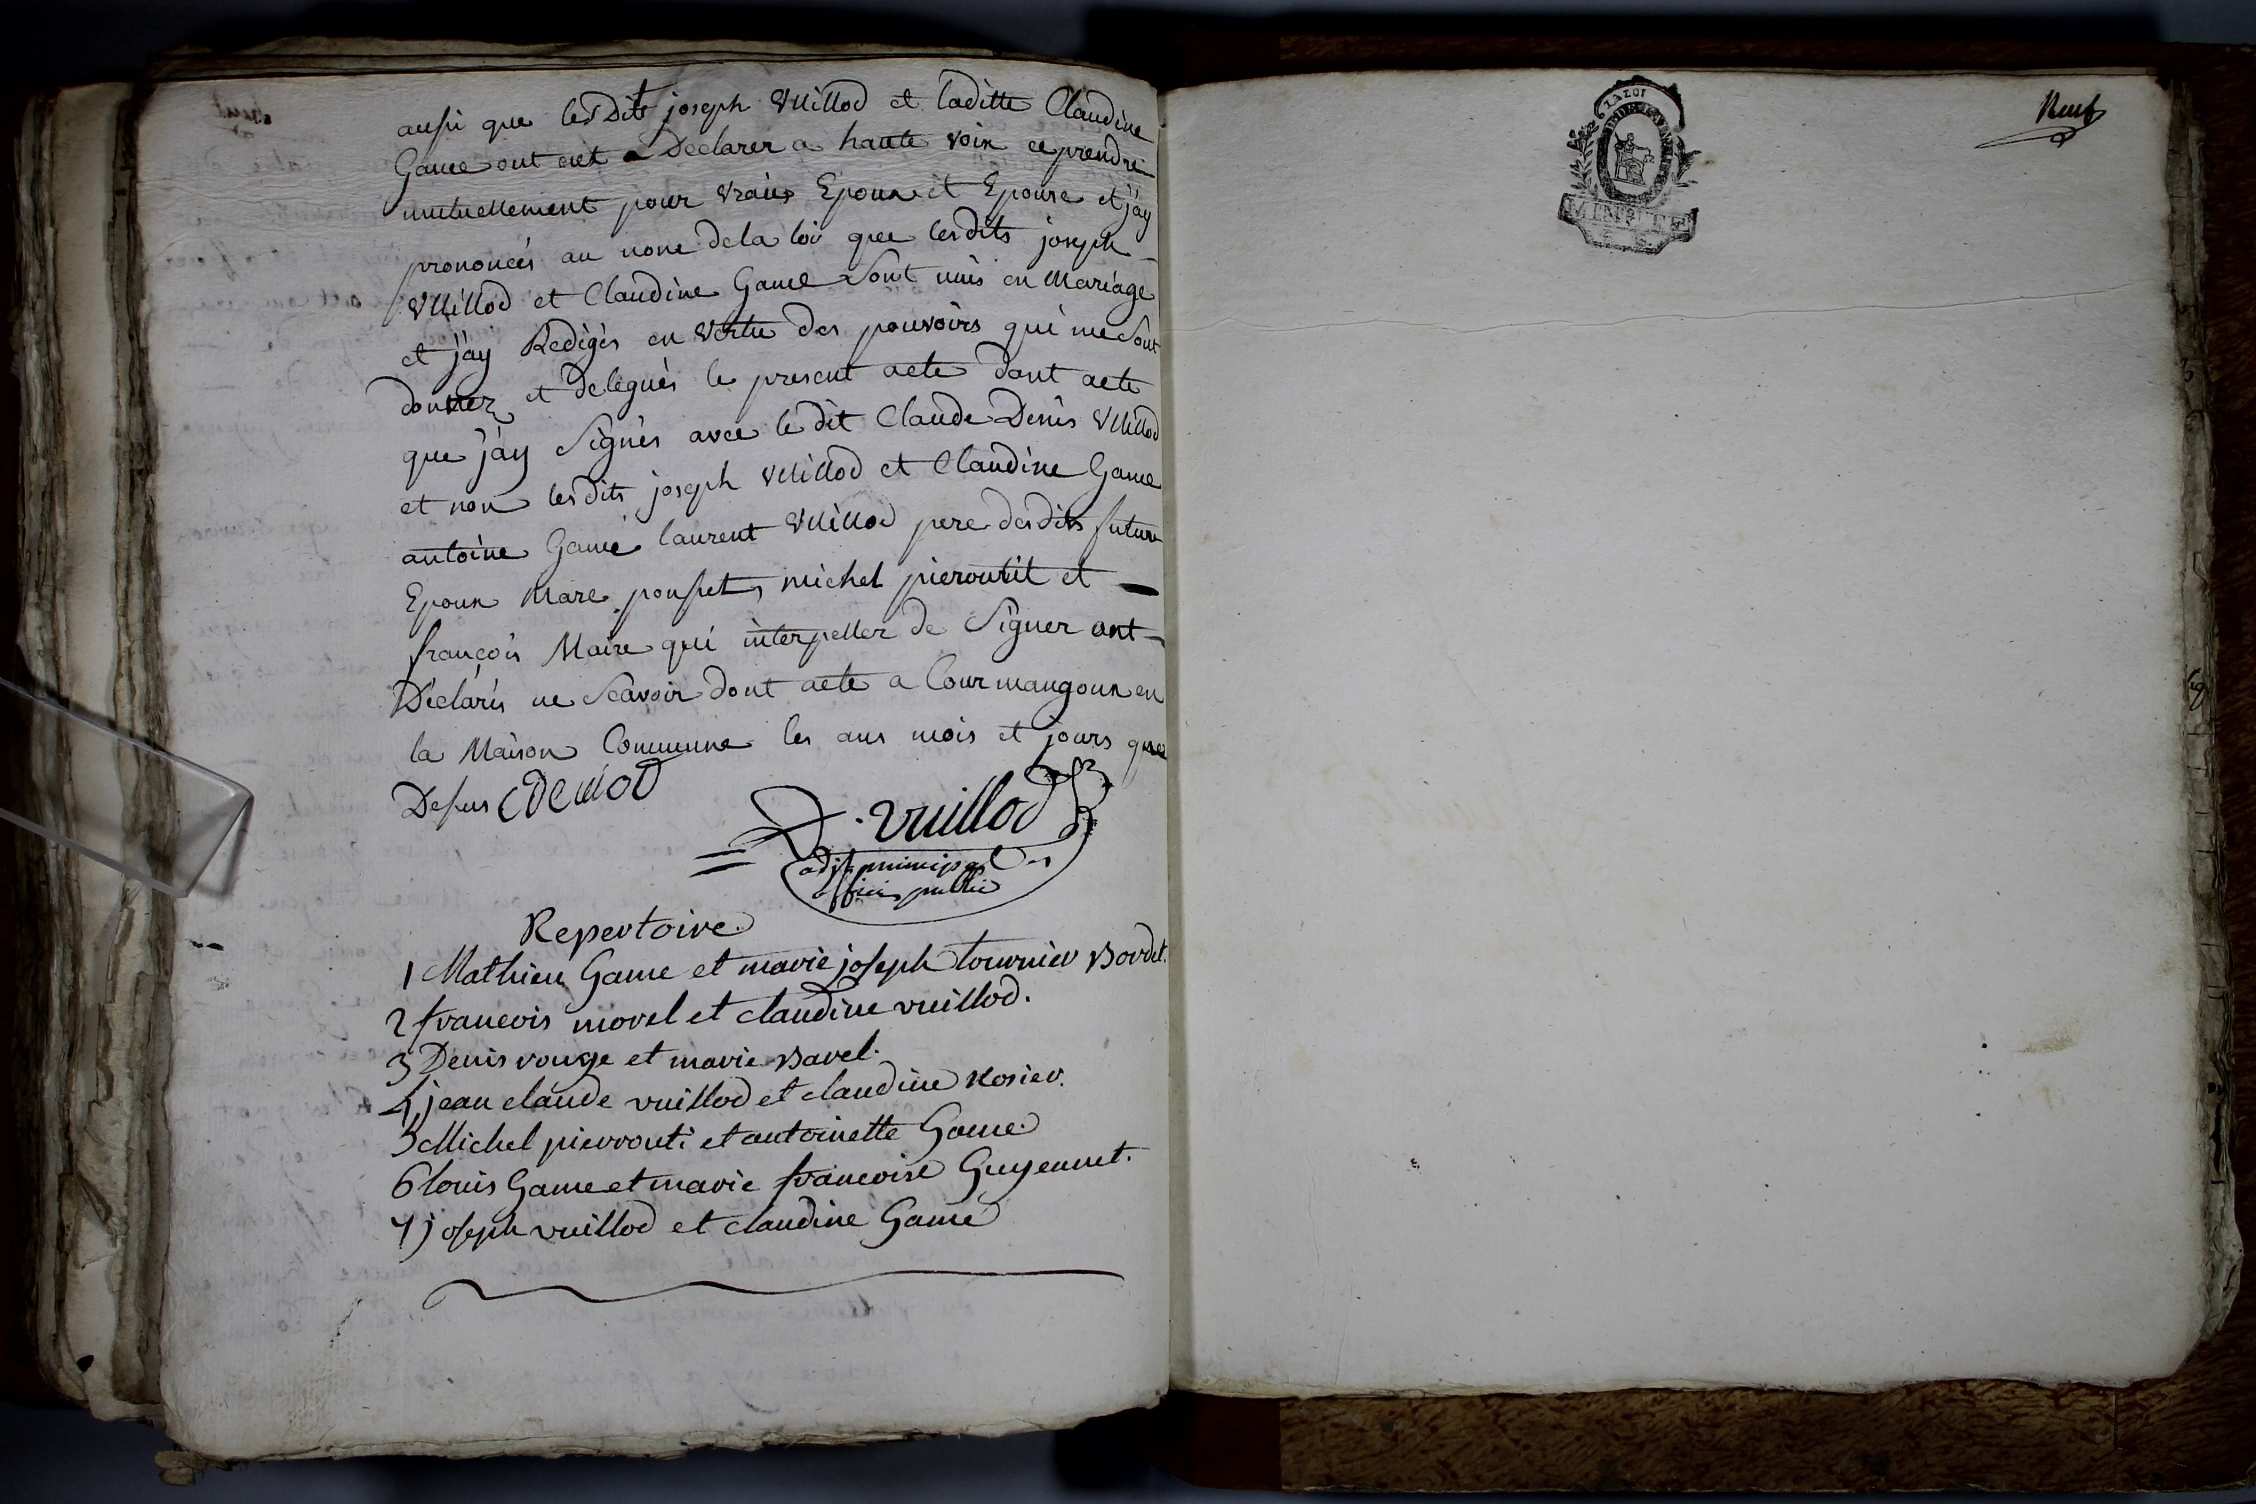 aussi que lesdits joseph Vuillod et laditte Claudine
Game ont eut a Declarer a haute voix ce prendre
mutuellement pour vraies Epoux et Epouse et j'ay
prononcés au nome dela loi que lesdits joseph
Vuillod et Claudine Game sont unis en Mariage
et j'ay Redigés en Vertu des pouvoirs qui me sont
donner et Delegués le present acte dont acte
que j'ay Signés avec le dit Claude Denis Vuillod
et non lesdits joseph Vuillod et Claudine Game
antoine Game laurent Vuillod pere desdits future
Epoux Marc pousset, michel pieroutit et
françois Maire qui interpeller de Signer ont
Déclarés ne Scavoir dont acte a Cour mangoux en
la Maison Commune les ans mois et jours que
Desus
D. vuillod
adjt municipal
officie public
Repertoire
1 Mathieu Game et marie joseph tournier Bordet.
2 francois morel et claudine vuillod.
3 Denis rouge et marie Bavel.
4 jean claude vuillod et claudine Rosier.
5 Michel pierrouti et antoinette Game
6 louis Game et marie francoise Guyennet.
7 joseph vuillod et claudine Game
MINUTE
Neuf